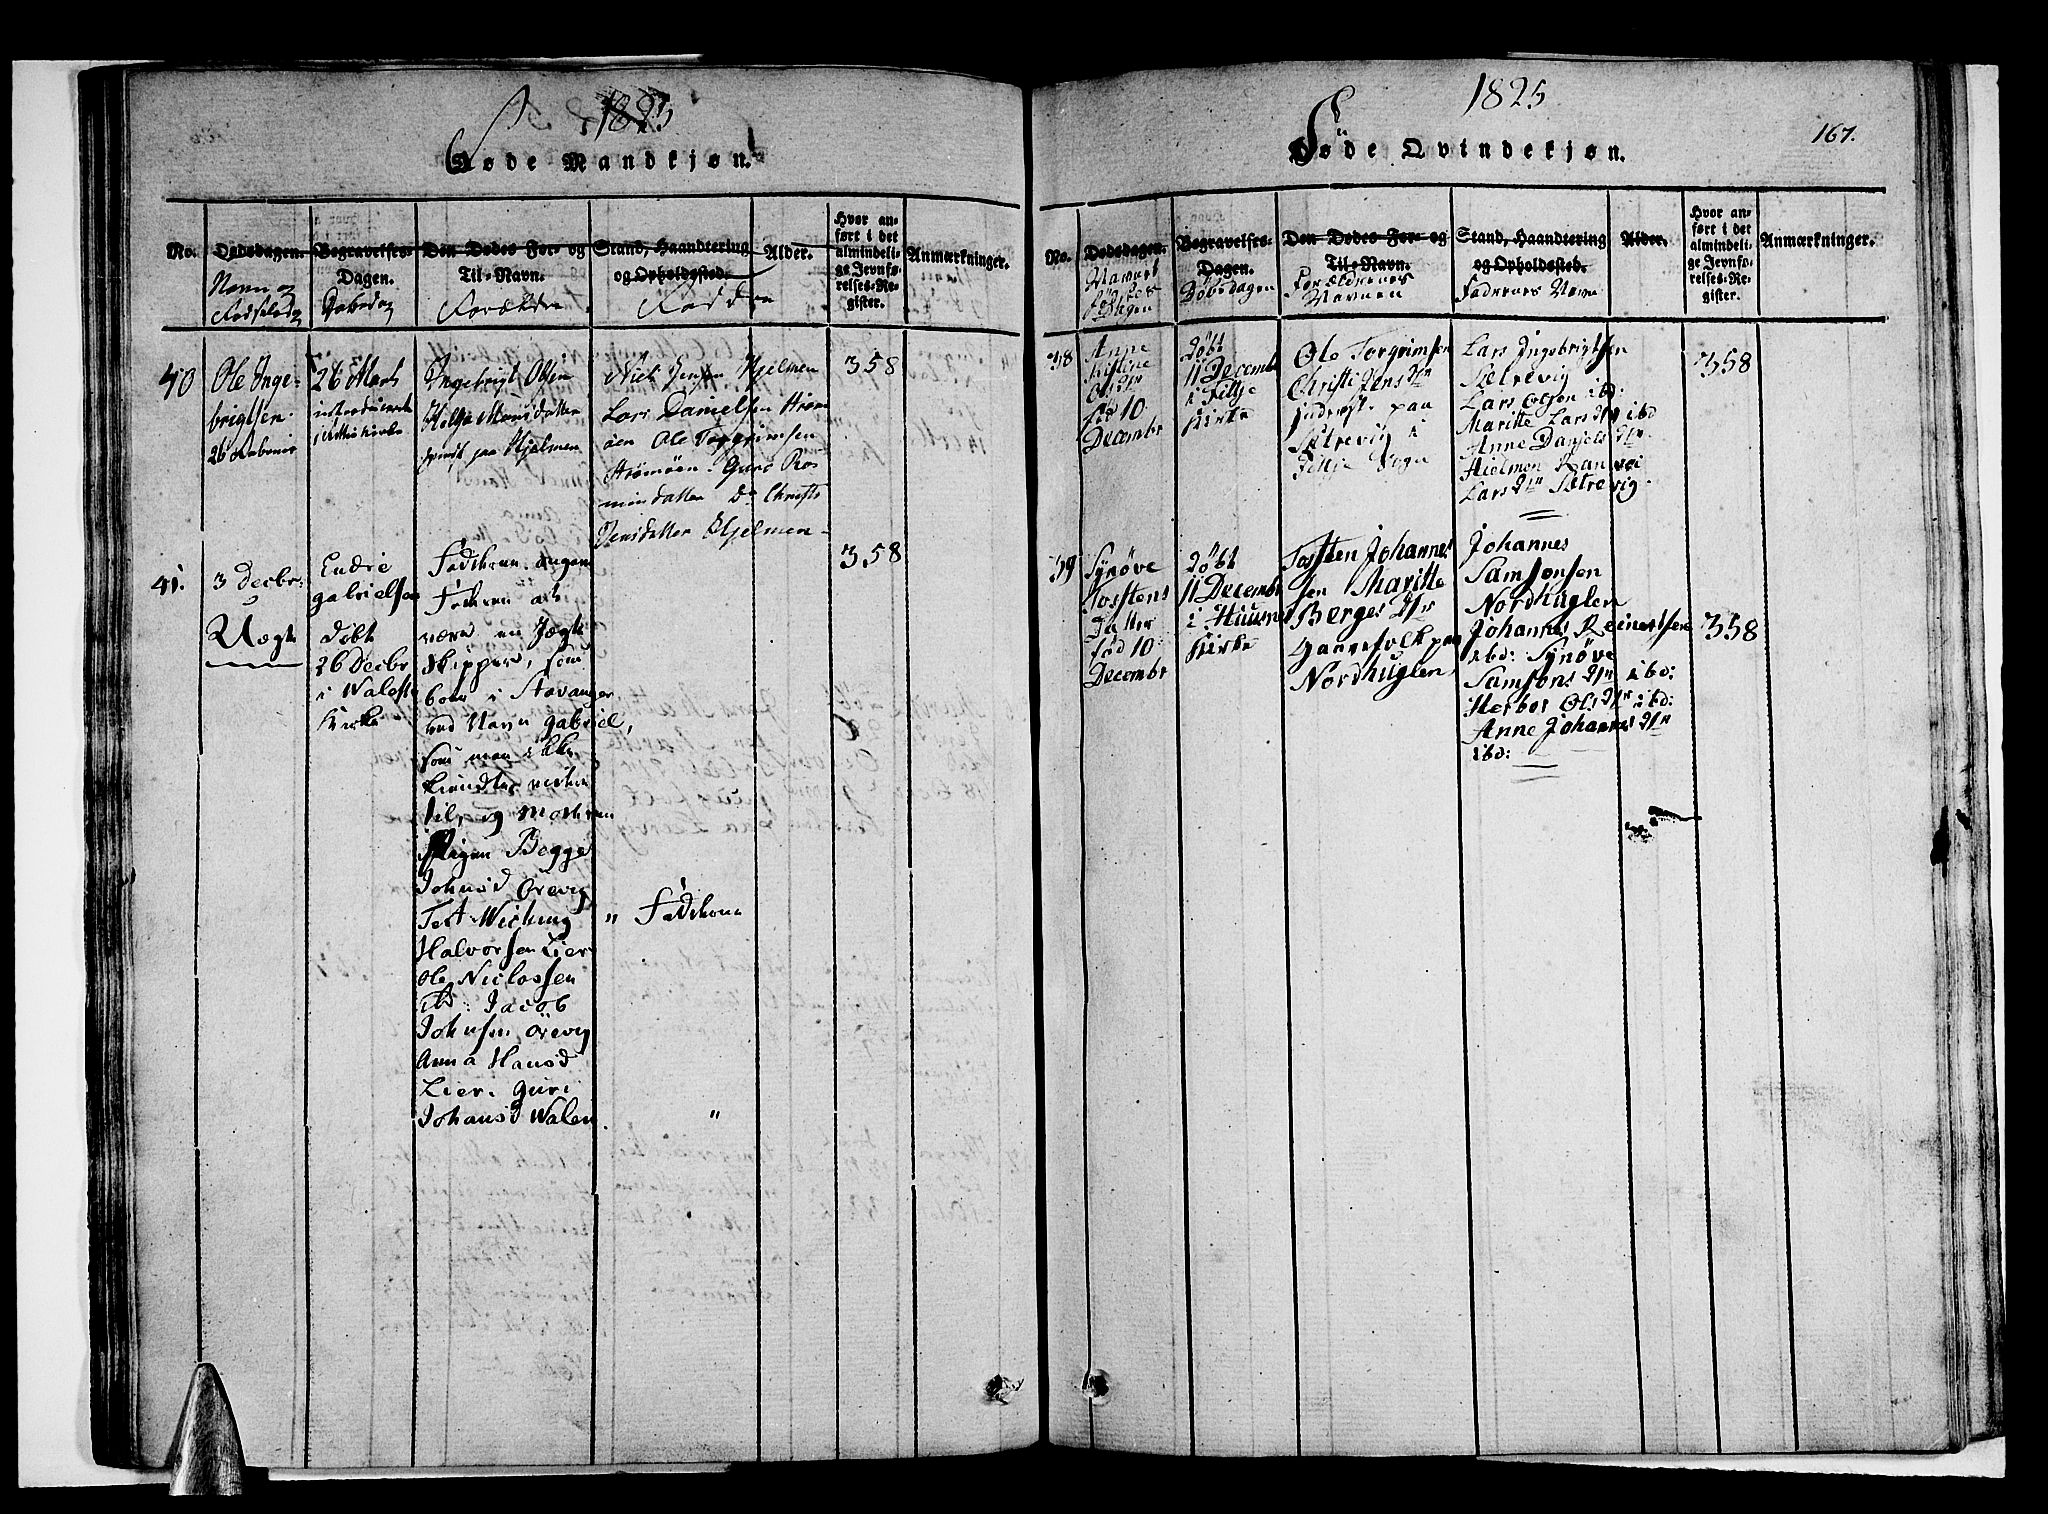 1825
Døde Mandkjøn.
No.
Dødsdagen.
Navn og
Begravelses-
Dagen.
Daabsdag
Den Dødes For- og
Til-Navn.
Forældre
Stand, Haandtering
og Opholdssted.
Faddre
Alder.
Hvor an-
ført i det
almindeli-
ge Jevnfø-
relses-Re-
gister.
Anmærkninger.
40
Ole Inge-
brigtsen
26
26 Marts
introduceret
Ingebrigt Olsen
Helga Monsdatter
paa Hjelmen
Niels Jensen Hjelmen
Lars Danielsen Strøm
øen Ole Torgrimsen
Strømøen. Guro Ras
musdatter Do Christi
Jensdatter Hjelmen
358
41.
3 Decbr.
Uægte
Endre
Gabrielsen
døbt
26 Decbr
i Walestr
Kirke
Fadderen angav
være en Jægt
Skipper, som
boer i Stavanger
ved Navn Gabriel,
som man ikke
kiendte videre
til, og Moderen
Pigen Begge
Johnsd Orevig
Test Wiching
Halvorsen Lier
Ole Niclossen
ibd: Jacob
Johnsen Orevig
Anna Hansd
Lier. Guri
Johansd Walen.
" Faddrene
"
358
1825
167.
Føde Qvindekjøn.
No.
Dødsdagen.
Navnet
fødsels
Dagen
Begravelses-
Dagen.
Døbsdagen
Den Dødes For- og
Til-Navn.
Forældrenes
Navnen
Stand, Haandtering
og Opholdssted.
Faddernes Navne
Alder.
Hvor an-
ført i det
almindeli-
ge Jevnfø-
relses-Re-
gister.
Anmærkninger.
38
Anne
Kistine
Ols Dtr
fød 10
Decembr
døbt
11 Decembr
i Fittje
Kirke
Ole Torgrimsen
Christi Jens Dtr
paa
Sætrevig i
Fittje Sogn
Lars Ingebrigtsen
Sætrevig
Lars Olsen ibd:
Maritte Lars Dtr ibd
Anne Daniels Dtr
Hielmen Ranvei
Lars Dtr Sætrevig.
358
39
Synøve
Tosstens
Datter
fød 10
Decembr
døbt
11 Decembr
i Huusnes
Kirke
Tossten Johannes
sen Maritte
Berges Dtr
Gaardfolk paa
Nordhuglen
Johannes
Samsonsen
Nordhuglen
Johannes Reinertsen
ibd: Synøve
Samsons Dtr ibd:
Herbor Ols Dtr ibd:
Anne Johannes Dtr
ibd:
358